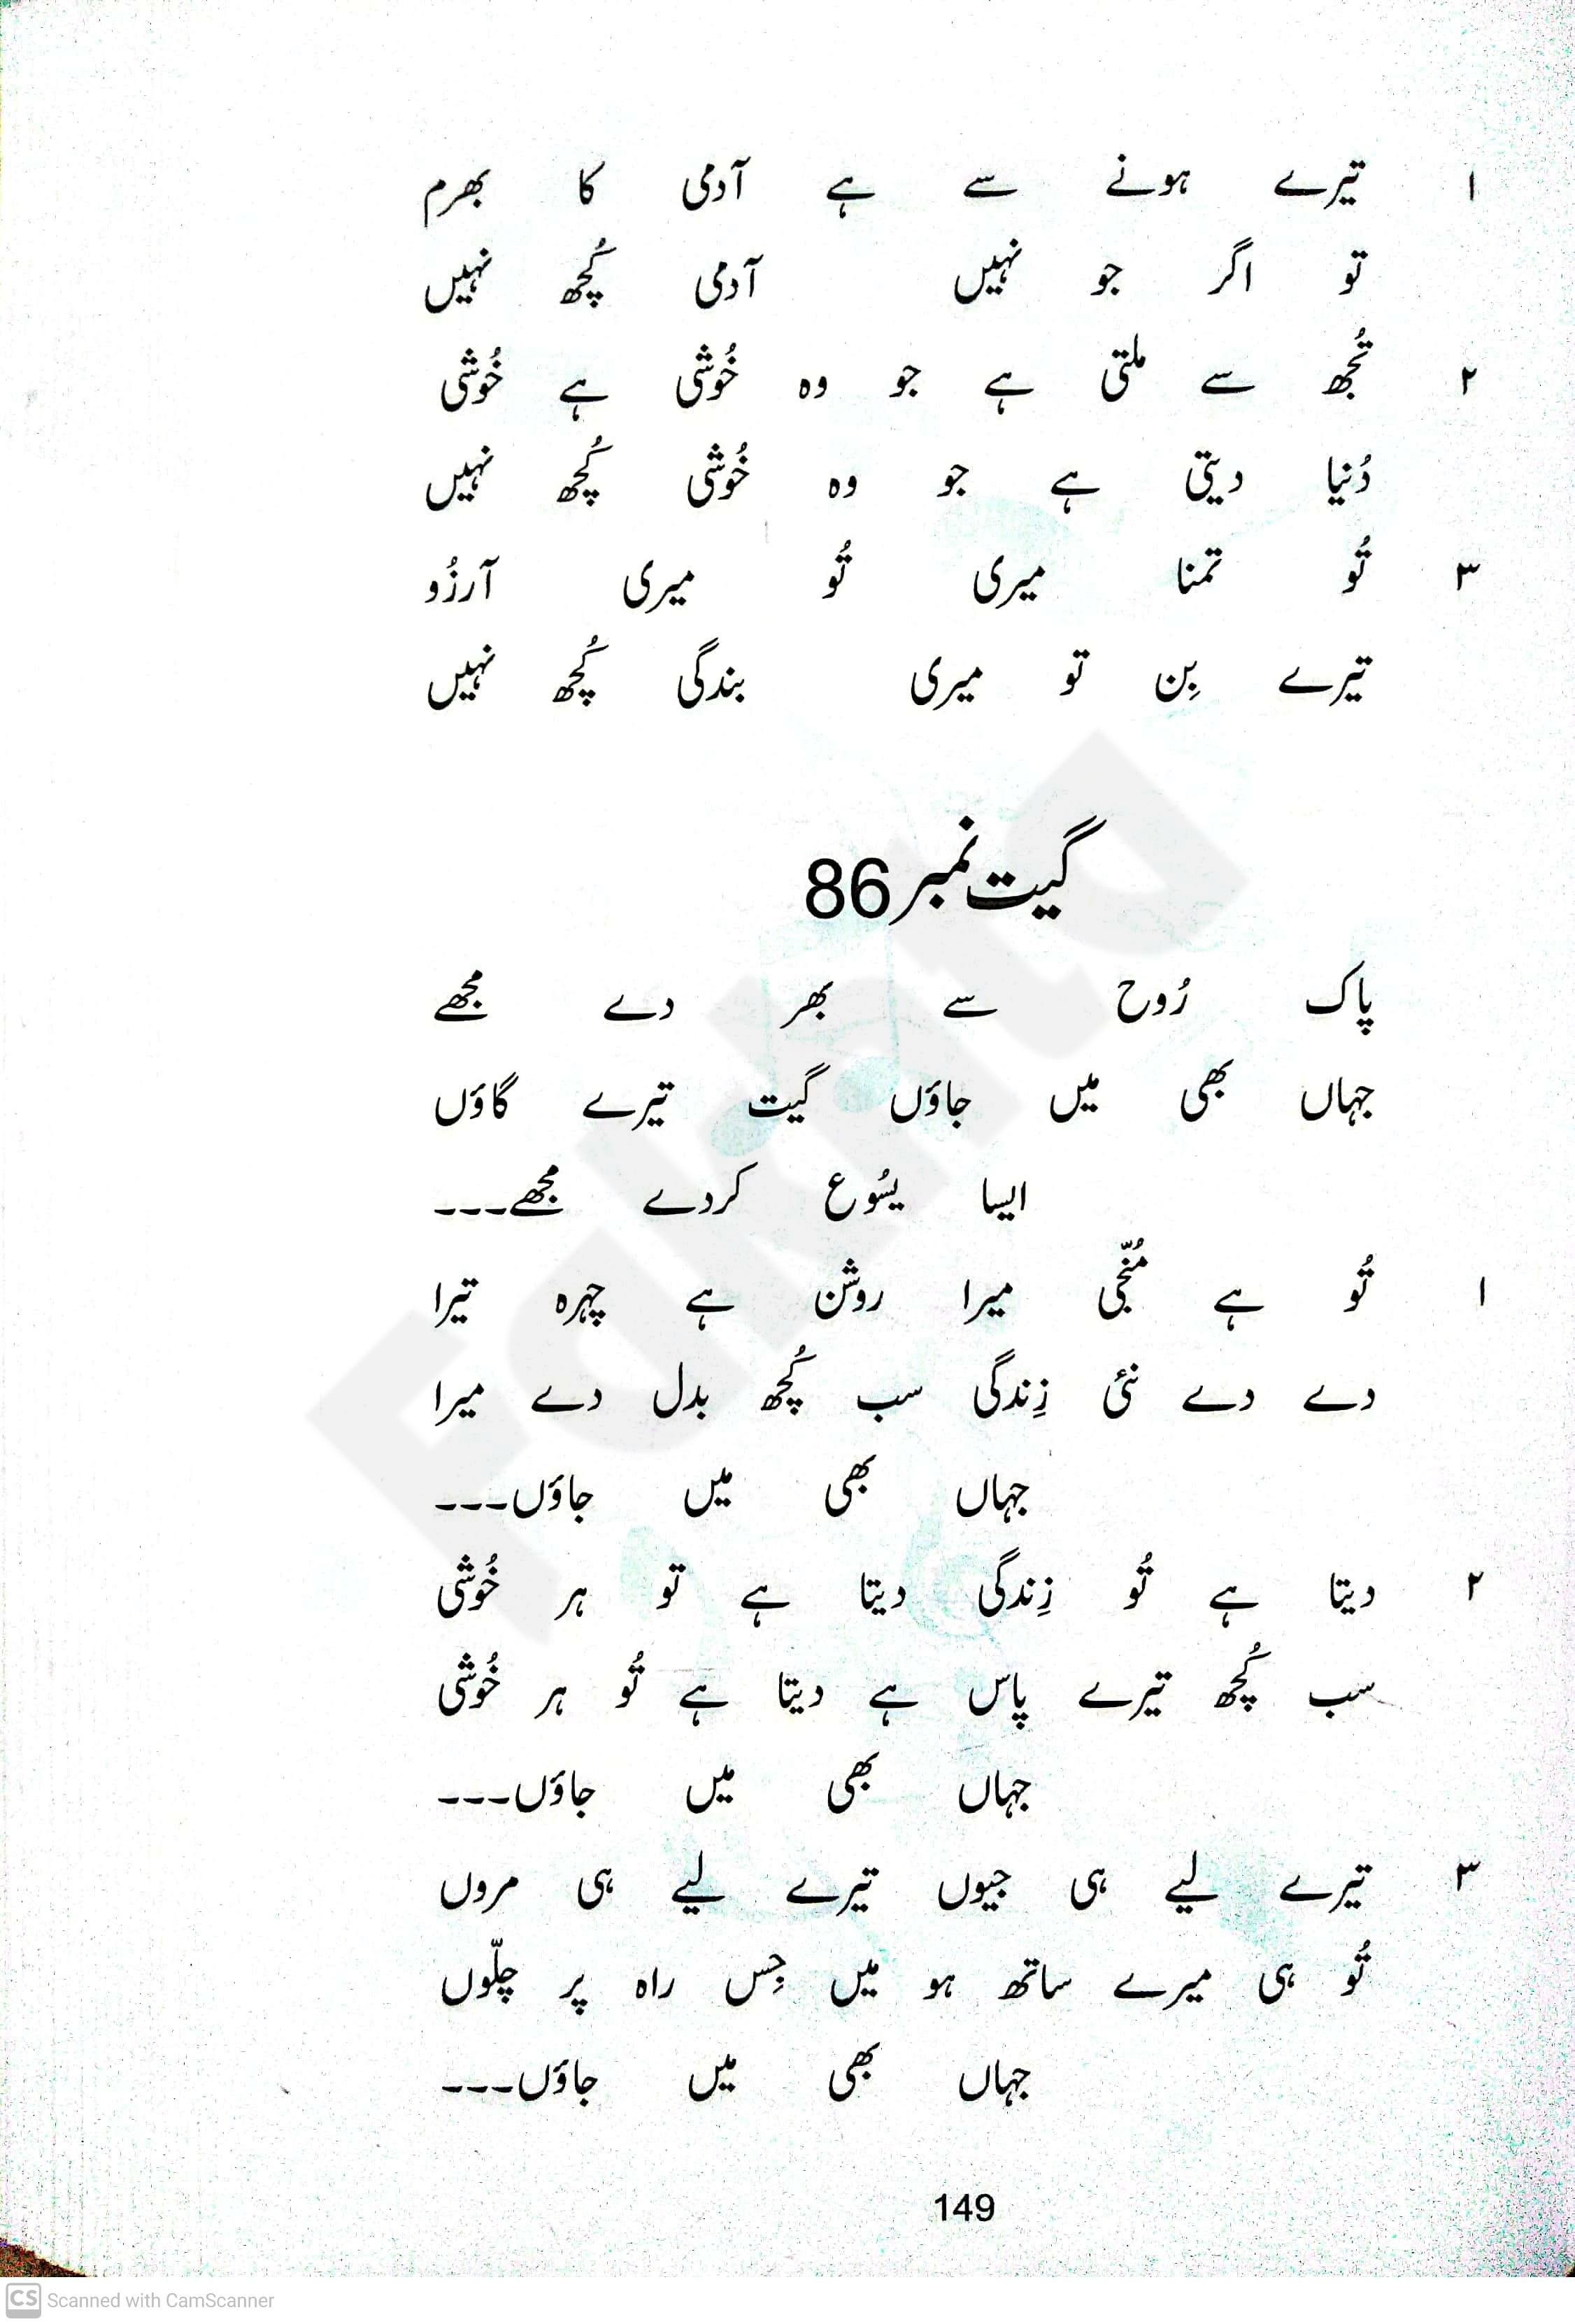 ۱ تیرے ہونے سے ہے آدمی کا بھرم
تو اگر جو نہیں آدمی کُچھ نہیں
۲ تُجھ سے ملتی ہے جو وہ خُوشی ہے خُوشی
دُنیا دیتی ہے جو وہ خُوشی کُچھ نہیں
۳ تُو تمنا میری تُو میری آرزُو
تیرے بِن تو میری بندگی کُچھ نہیں
گیت نمبر 86
پاک رُوح سے بھر دے مجھے
جہاں بھی میں جاؤں گیت تیرے گاؤں
ایسا یسُوع کردے مجھے۔۔۔
۱ تُو ہے مُنّجی میرا روشن ہے چہرہ تیرا
دے دے نئی زِندگی سب کُچھ بدل دے میرا
جہاں بھی میں جاؤں۔۔۔
۲ دیتا ہے تُو زِندگی دیتا ہے تو ہر خُوشی
سب کُچھ تیرے پاس ہے دیتا ہے تُو ہر خُوشی
جہاں بھی میں جاؤں۔۔۔
۳ تیرے لیے ہی جیوں تیرے لیے ہی مروں
تُو ہی میرے ساتھ ہو میں جِس راہ پر چلّوں
جہاں بھی میں جاؤں۔۔۔
149
Fakhta
CS Scanned with CamScanner